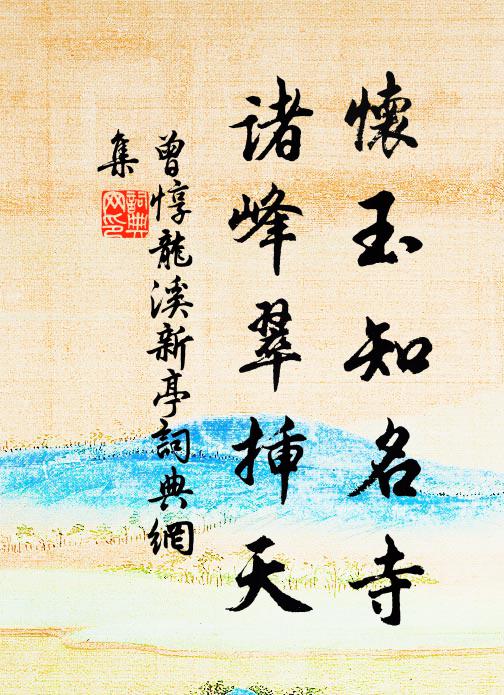 懷玉知名寺
諸峰翠揷天
曾惇龍溪新亭詞典網
集
詞典
网印